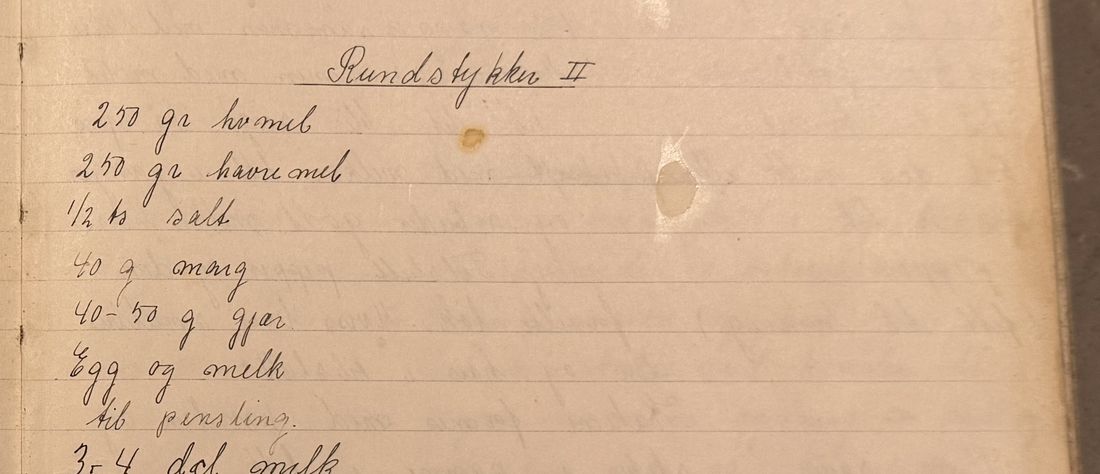 Rundstykker II
250 gr hvmel
250 gr havremel
1/2 ts salt
40 g marg
40-50 g gjær
Egg og melk
til pensling.
3-4 dcl melk